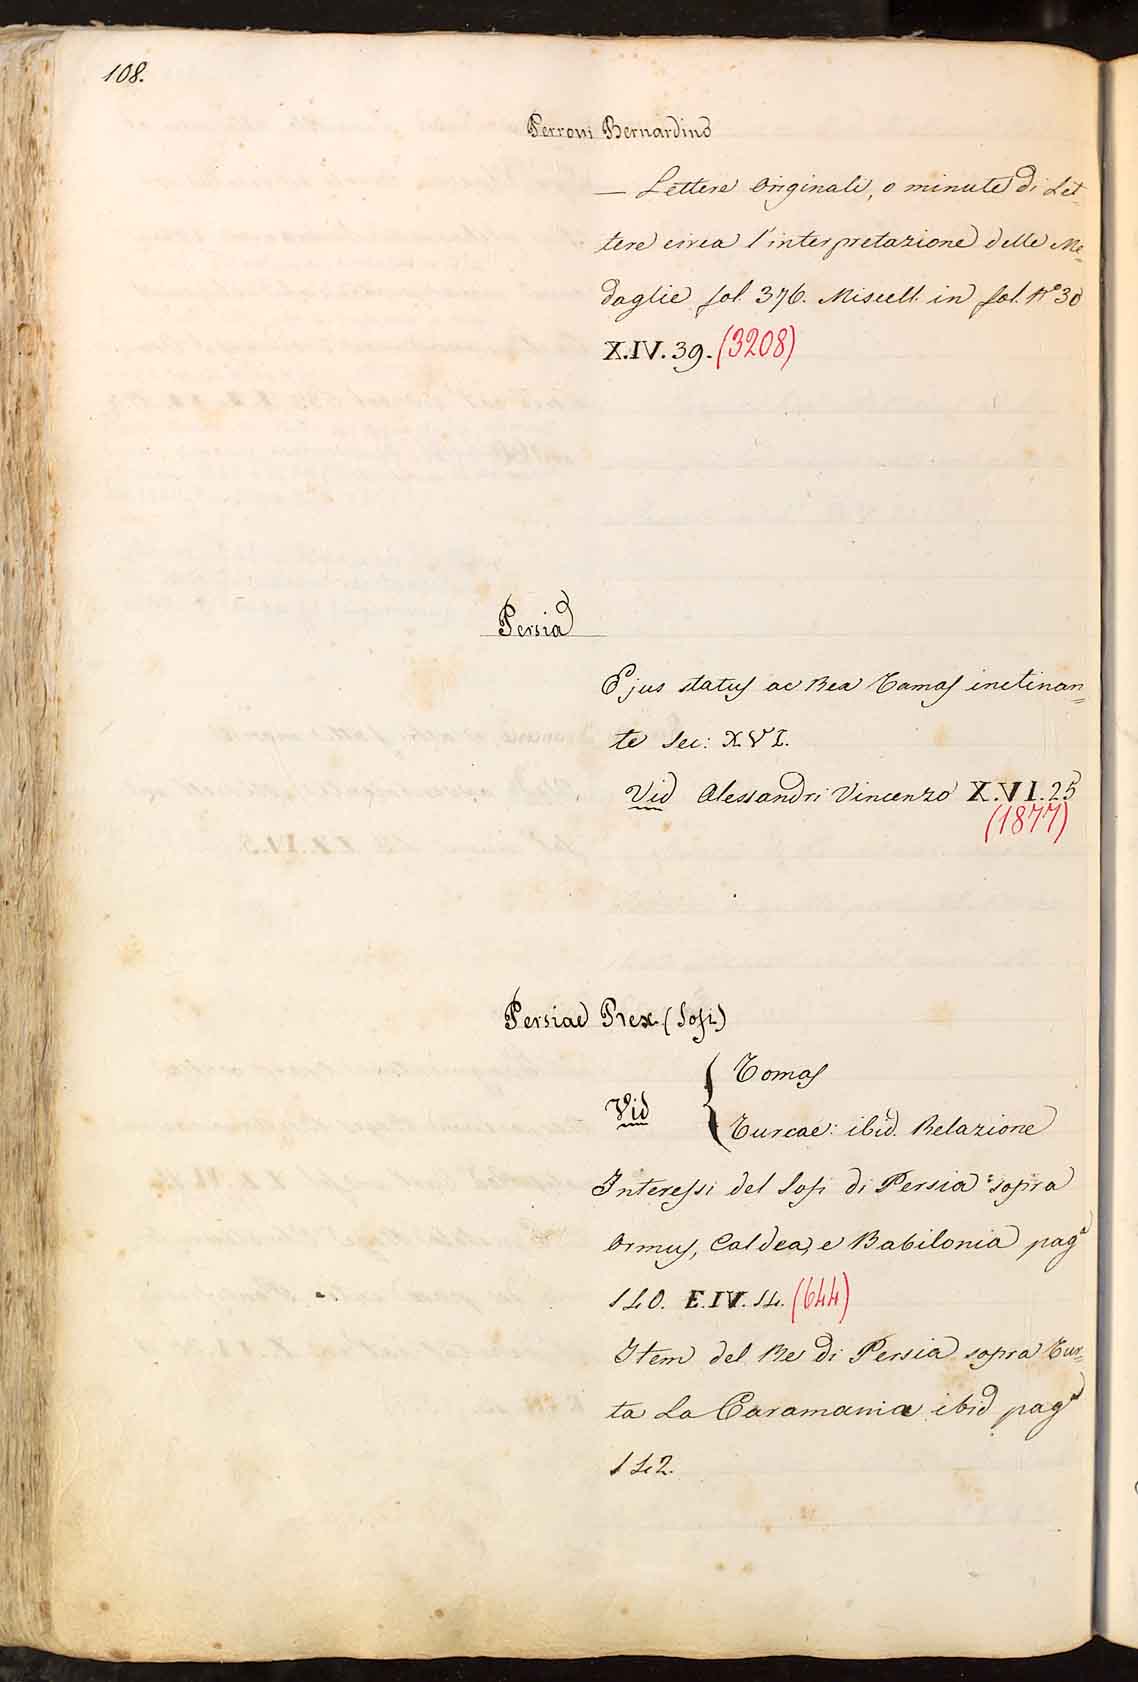 108.
Perroni Bernardino
— Lettere Originali, o minute di Let=
tere circa l'interpretazione delle Me=
daglie fol. 376. Miscell. in fol. N.º 30
X.IV.39. (3208)
Persia
Ejus status ac Rex Tamas inclinan=
te sec: XVI.
Vid Alessandri Vincenzo X.VI.25
(1877)
Persiae Rex (Sofi)
Vid { Tomas
Turcae: ibid. Relazione
Interessi del Sofi di Persia sopra
Ormus, Caldea, e Babilonia pagª
140. E.IV.14. (644)
Item del Re di Persia sopra Tut=
ta La Caramania ibid pagª
142.